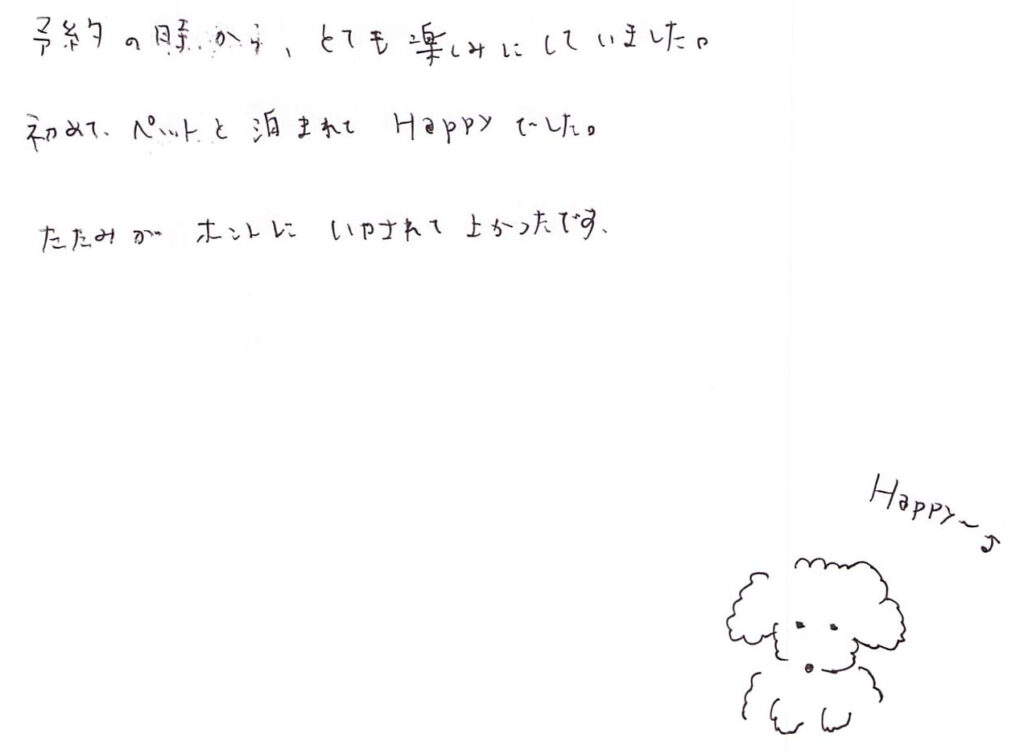 予約の時から、とても楽しみにしていました。
初めて、ペットと泊まれて Happyでした。
たたみが ホントに いやされて 上かったです、
Happy~♪